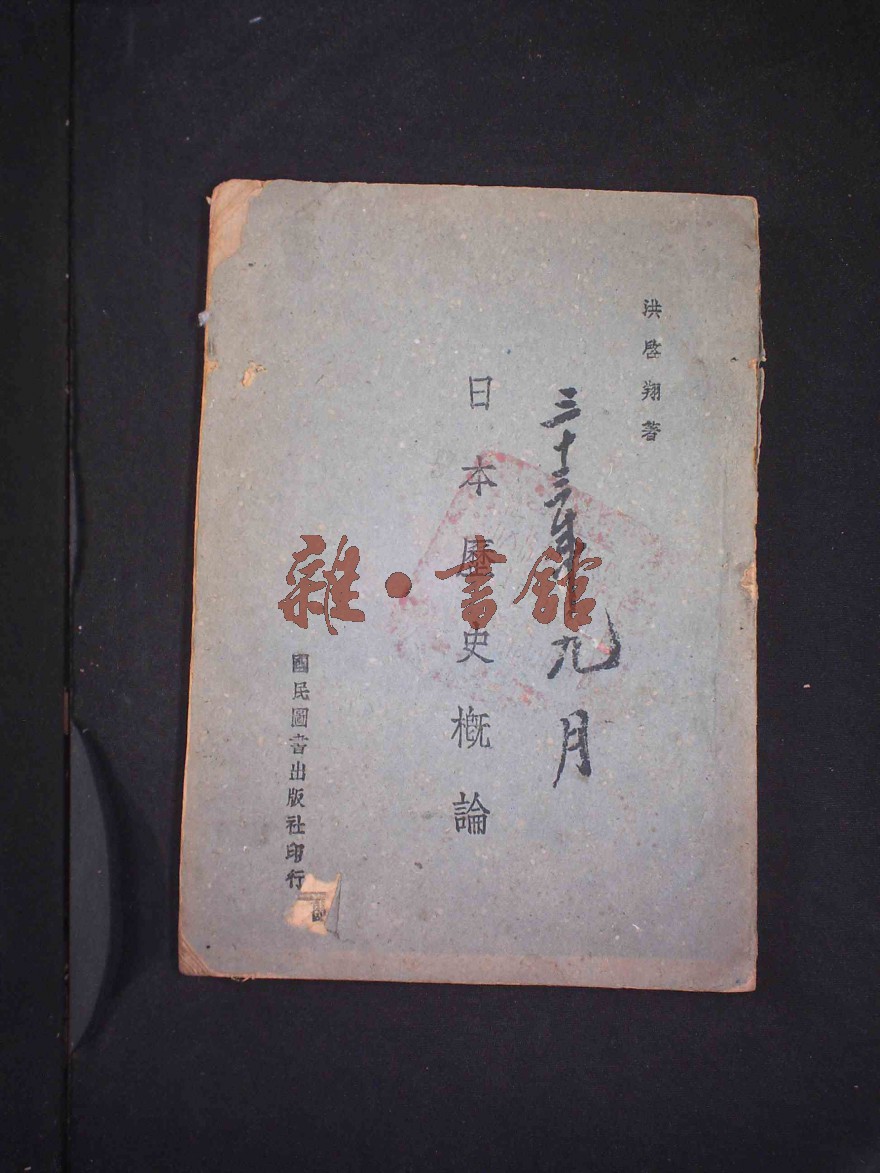 洪啓翔著
三十三年九月
日本歷史概論
雜·書館
國民圖書出版社印行